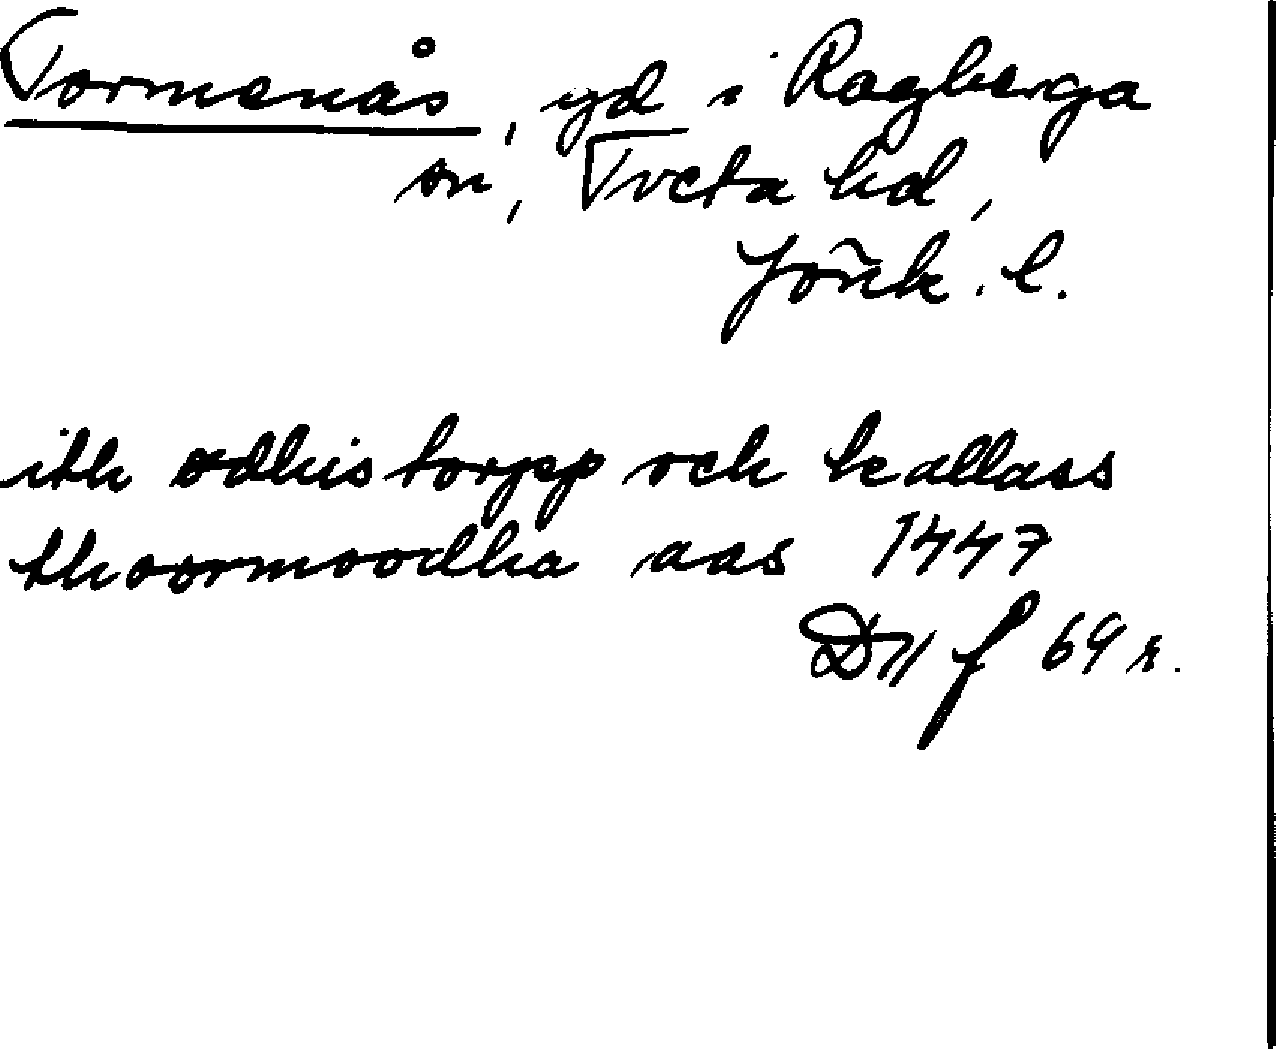 Tormenås, yd i Rogberga
sn, Tveta hd,
Jönk. l.
ith ødhis torpp och kallass
thoormoodha aas 1447
D 11 f 69 r.